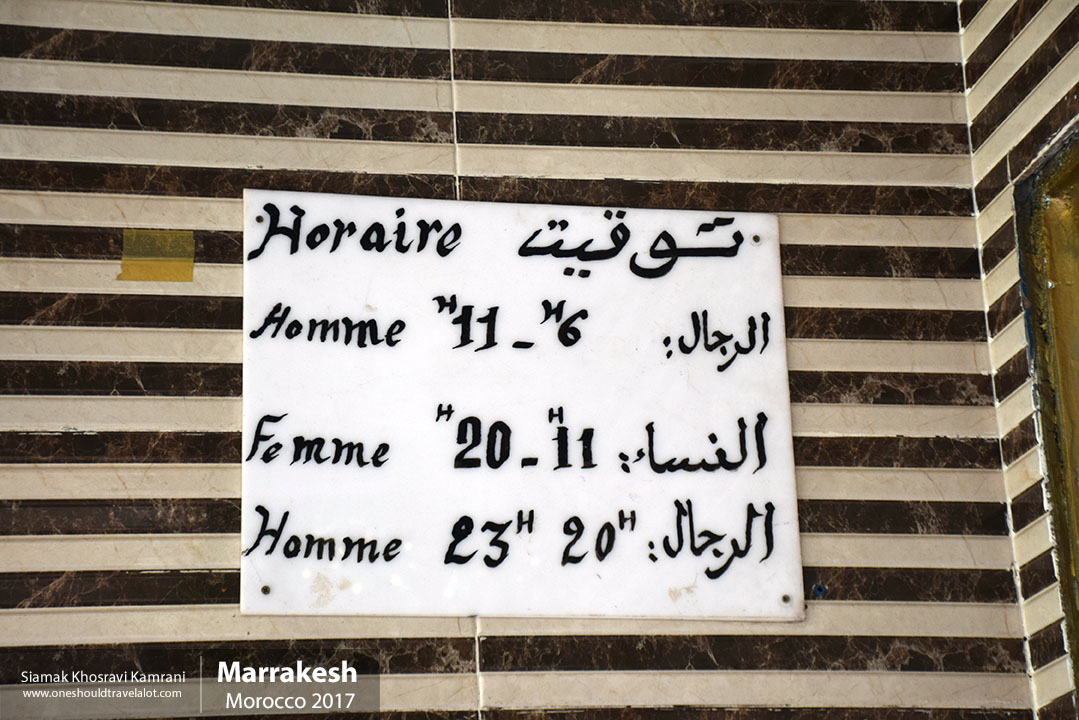 Horaire توقيت
Homme ᴴ11 - ᴴ6 الرجال:
Femme ᴴ20 - ᴴ11 النساء:
Homme 23ᴴ 20ᴴ الرجال:
Siamak Khosravi Kamrani
www.oneshouldtravelalot.com
Marrakesh
Morocco 2017